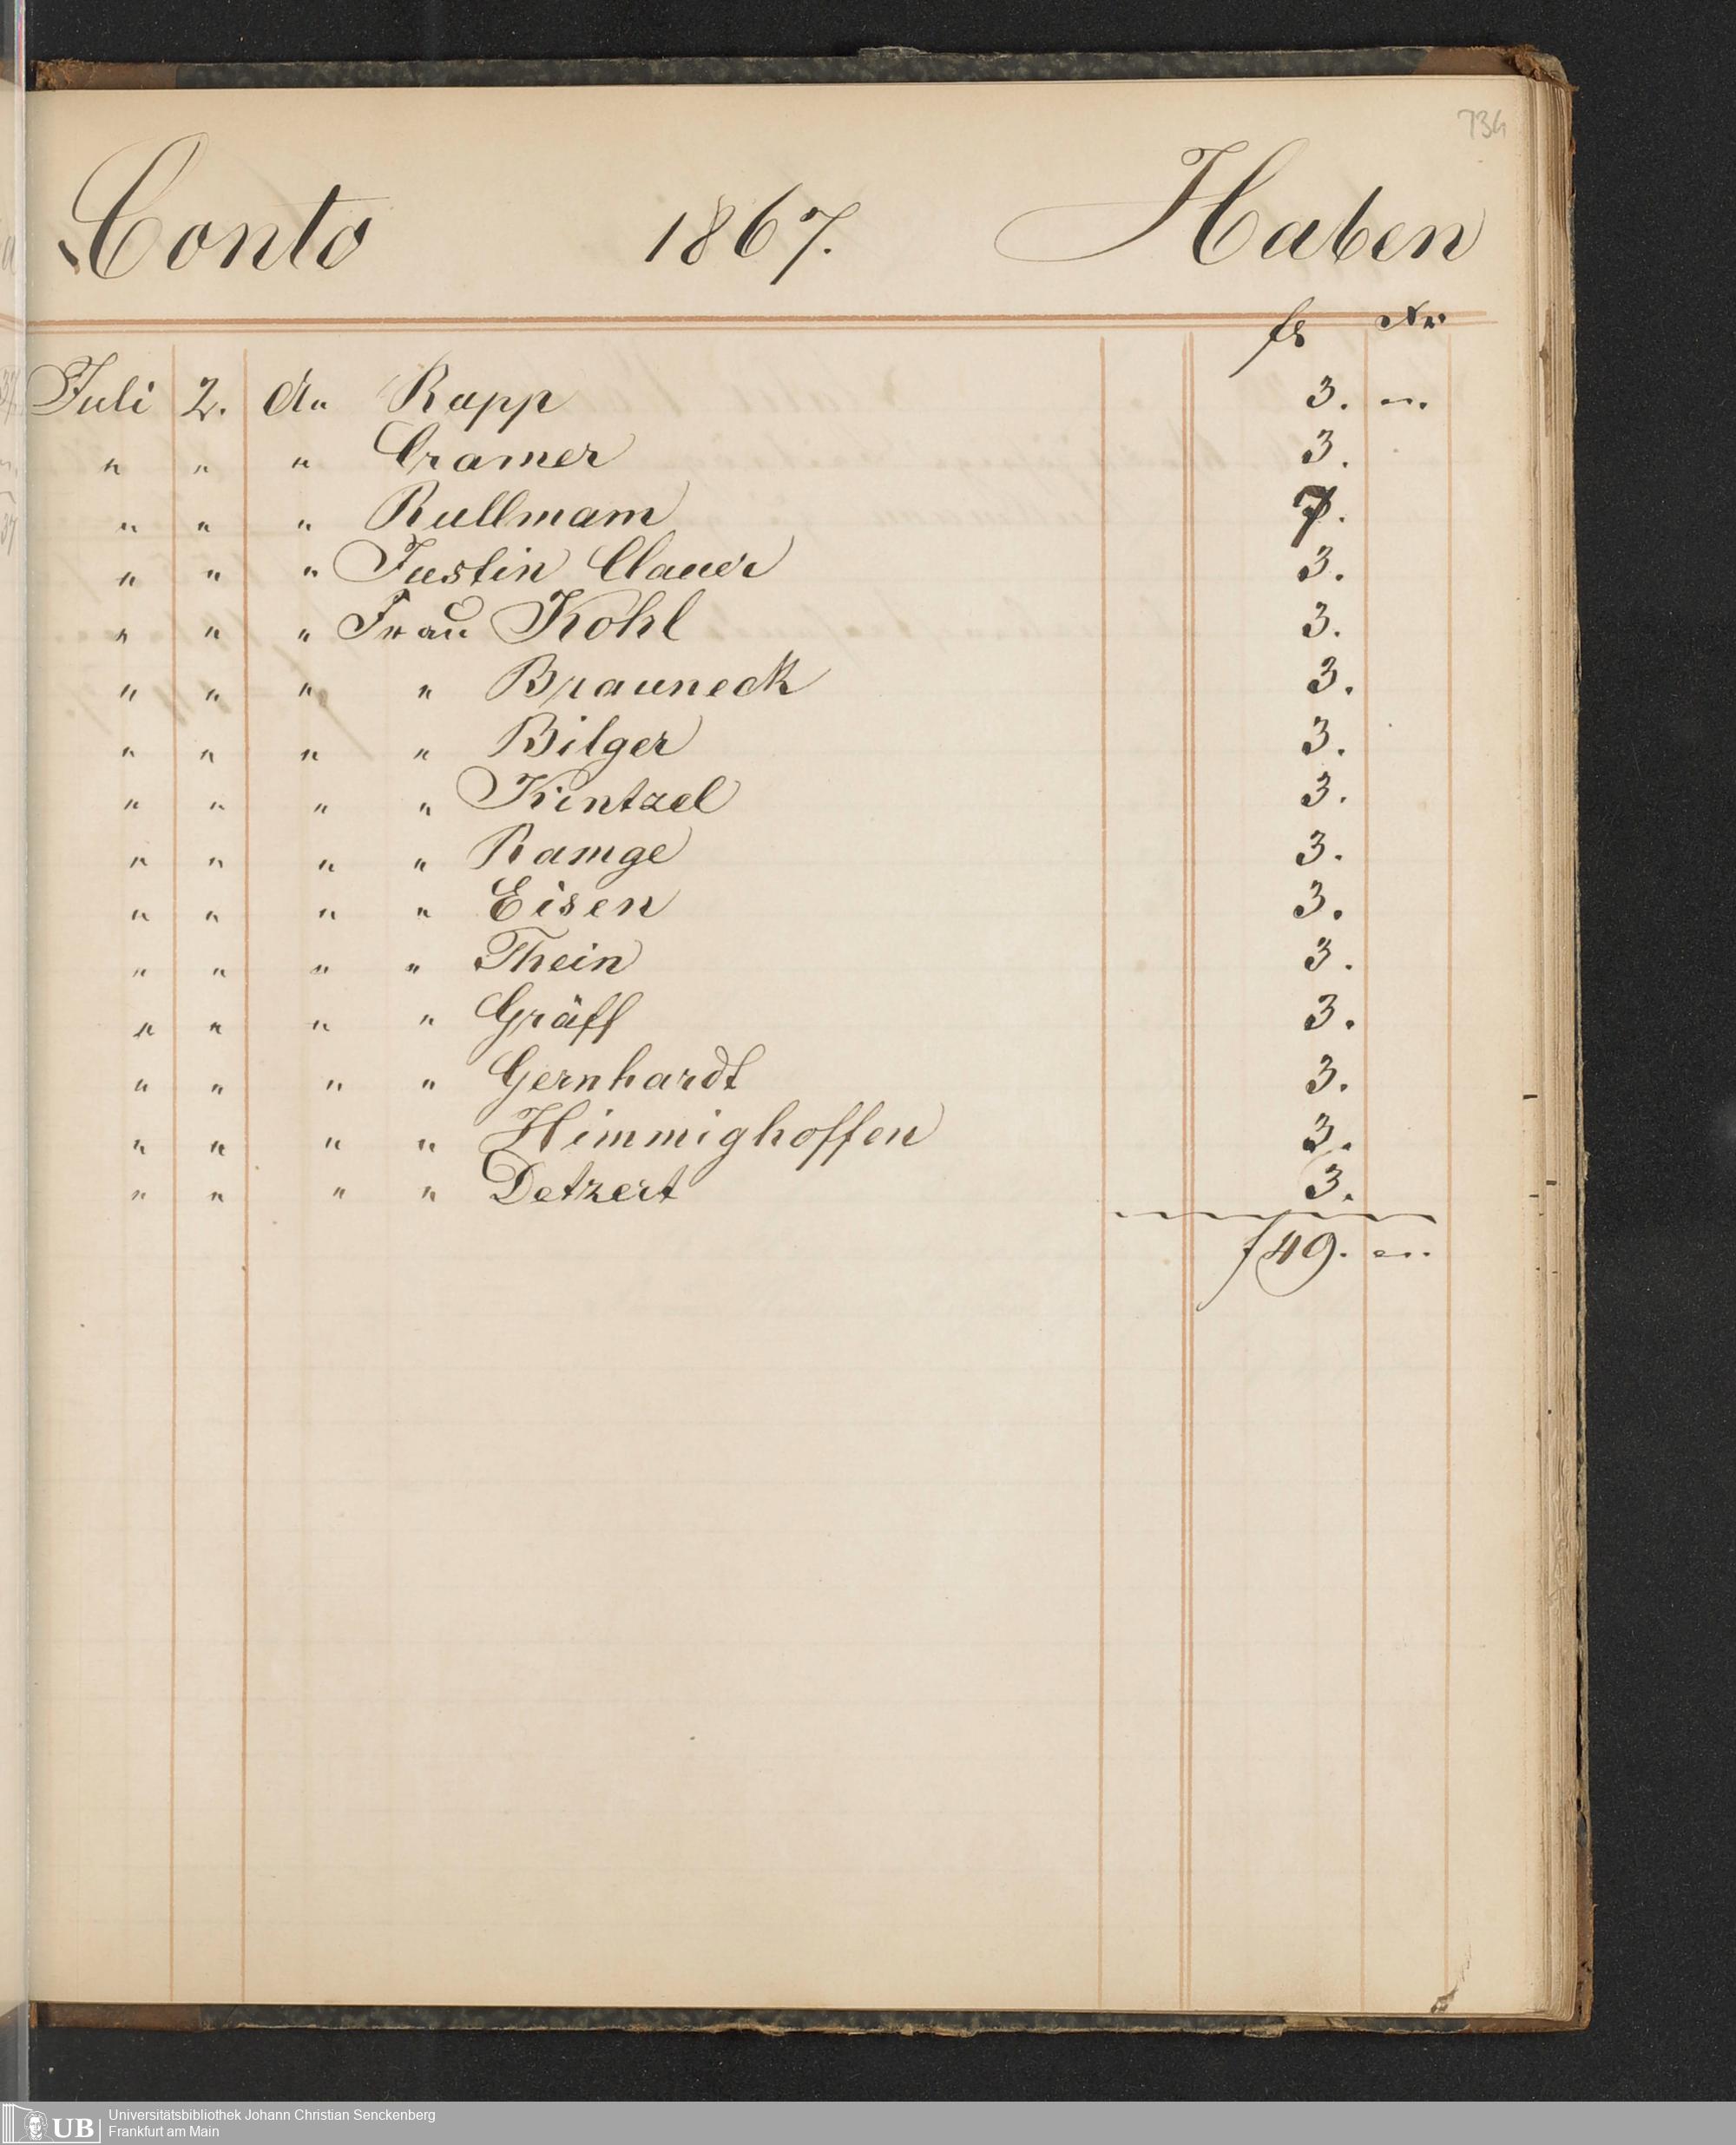 734
Conto 1867. Haben
fs Xr
Juli 2. An Rapp 3. —.
" " " Cramer 3.
" " " Rullmann 7.
" " " Justin Clauer 3.
" " " Frau Kohl 3.
" " " " Brauneck 3.
" " " " Bilger 3.
" " " " Kintzel 3.
" " " " Ramge 3.
" " " " Eisen 3.
" " " " Thein 3.
" " " " Gräff 3.
" " " " Gernhardt 3.
" " " " Himmighoffen 3.
" " " " Detzert 3.
f 49. —.
UB
Universitätsbibliothek Johann Christian Senckenberg
Frankfurt am Main